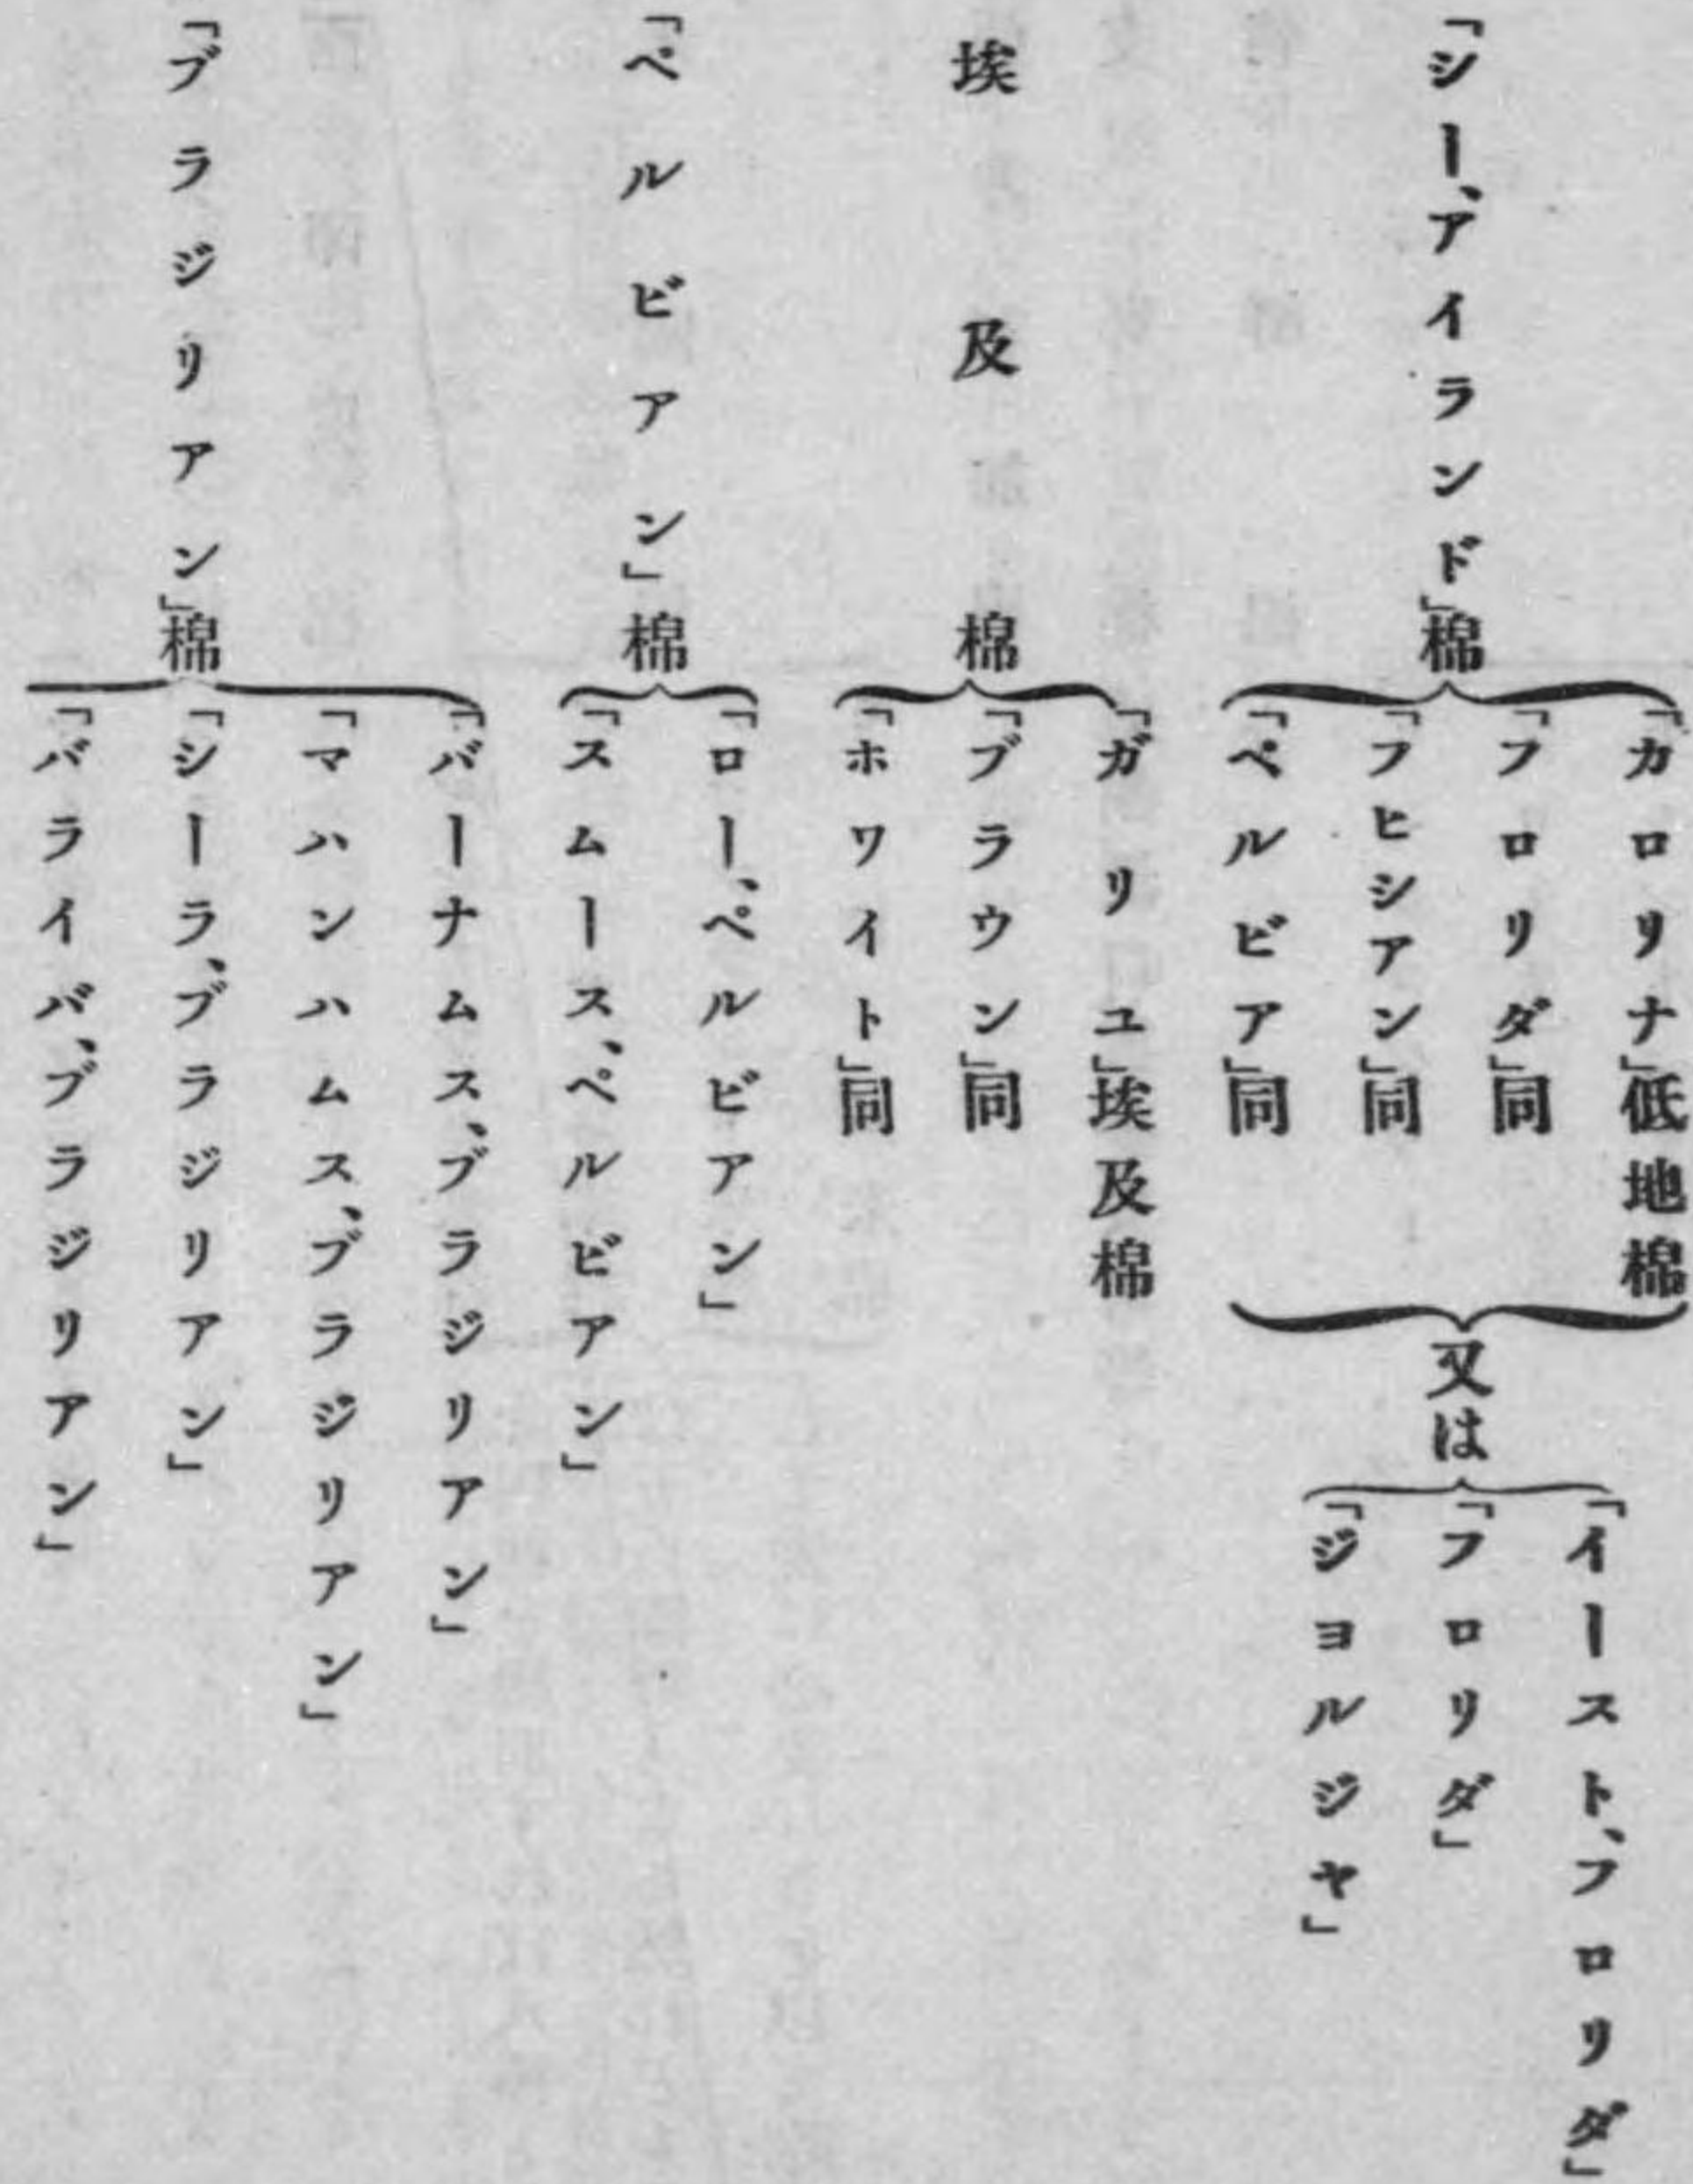 「シー、アイランド」棉
「カロリナ」低地棉
「フロリダ」同
「フヒシアン」同
「ペルビア」同
又は
「イースト、フロリダ」
「フロリダ」
「ジヨルジヤ」
埃及棉
「ガリユ」埃及棉
「ブラウン」同
「ホワイト」同
「ペルビアン」棉
「ロー、ペルビアン」
「スムース、ペルビアン」
「ブラジリアン」棉
「バーナムス、ブラジリアン」
「マハンハムス、ブラジリアン」
「シーラ、ブラジリアン」
「バライバ、ブラジリアン」